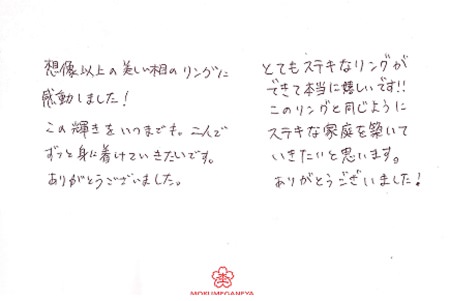 想像以上の美しい相のリングに
感動しました!
この輝きをいつまでも。二人で
ずっと身に着けていきたいです。
ありがとうございました。
とてもステキなリングが
できて本当に嬉しいです!!
このリングと同じように
ステキな家庭を築いて
いきたいと思います。
ありがとうございました!
MOKUMEGANEYA